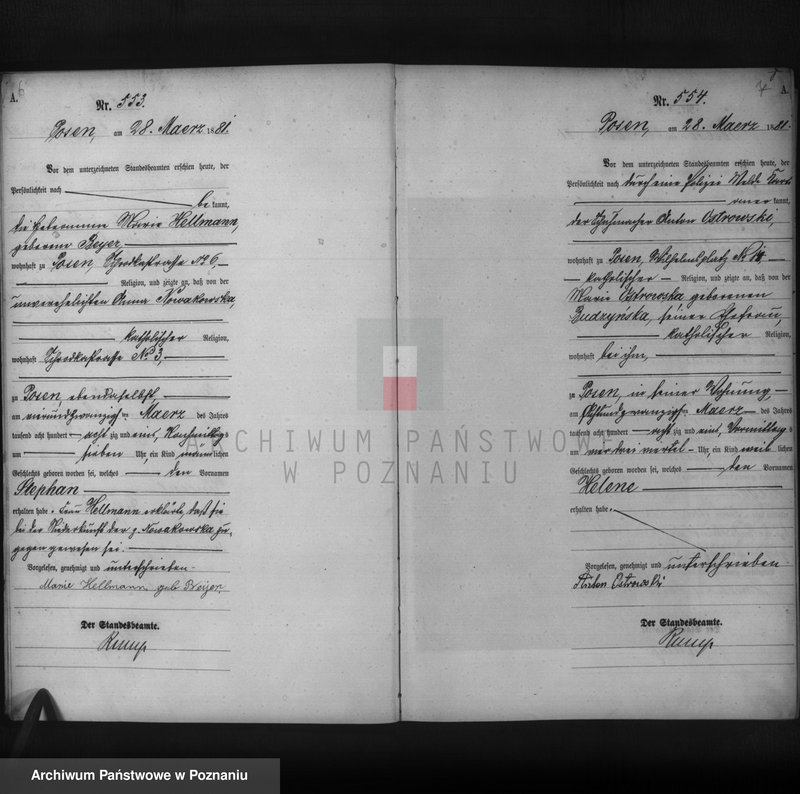 A.
Nr. 553.
Posen, am 28. Maerz 1881.
Vor dem unterzeichneten Standesbeamten erschien heute, der
Persönlichkeit nach
be kannt,
die Hebamme Marie Hellmann,
geborene Beyer,
wohnhaft zu Posen, Schrodkastrasse No 6,
Religion, und zeigte an, daß von der
unverehelichten Anna Nowakowska,
katholischer Religion,
wohnhaft Schrodkastrasse No 3,
zu Posen, ebendaselbst,
am vierundzwanzigten Maerz des Jahres
tausend acht hundert acht zig und eins, Nachmittags
um sieben Uhr ein Kind männlichen
Geschlechts geboren worden sei, welches den Vornamen
Stephan
erhalten habe. Frau Hellmann erklärte, daß sie
bei der Niederkunft der p. Nowakowska zu-
gegen gewesen sei.
Vorgelesen, genehmigt und unterschrieben
Marie Hellmann geb Beijer.
Der Standesbeamte.
7
A.
Nr. 554.
Posen, am 28. Maerz 1881.
Vor dem unterzeichneten Standesbeamten erschien heute, der
Persönlichkeit nach durch eine Polizei Melde Karte
kannt,
der Schuhmacher Anton Ostrowski,
wohnhaft zu Posen, Wilhelmsplatz No
katholischer Religion, und zeigte an, daß von der
Marie Ostrowska geborenen
Budzynska, seiner Ehefrau,
katholischer Religion,
wohnhaft bei ihm,
zu Posen, in seiner Wohnung
am achtundzwanzigten Maerz des Jahres
tausend acht hundert acht zig und eins, Vormittags
um ein drei viertel Uhr ein Kind weib lichen
Geschlechts geboren worden sei, welches den Vornamen
Helene
erhalten habe.
Vorgelesen, genehmigt und unterschrieben
Anton Ostrowski
Der Standesbeamte.
ARCHIWUM PAŃSTWOWE
W POZNANIU
Archiwum Państwowe w Poznaniu